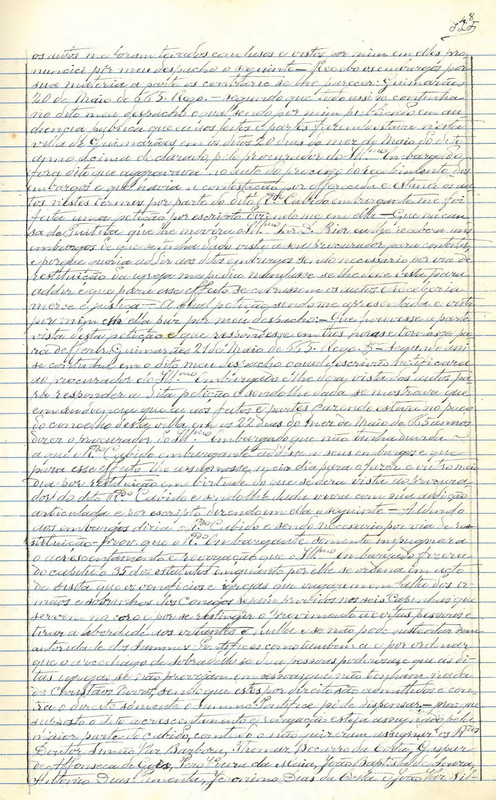 os autos me foram tornados conclusos e vistos por mim em elles pro
nunciei por meu despacho o seguinte — Recebo os embargos por
sua materia a parte os contrarie se lhe parecer. Guimarães
20 de Maio de 665. Rego. — segundo que
no dito meu despacho o qual sendo por mim publicado em au
diencia publica que eu aos feitos e partes fazendo estava n'esta
villa de Guimarães em os ditos 20 dias do mez de Maio do dito
anno acima declarado, pelo procurador do Ill.mo Embargado
fora dito que aggravava no auto do processo do recebimento dos
embargos e que havia a contestação por offerecida e estando os au
tos n'estes termos por parte do dito R.do Cabido embargante me foi
feita uma petição por escripto dizendo-me em ella — Que na cau
sa de justiça que me movera o Ill.mo Snr. D. Prior eu lhe recebera uns
embargos de que se tinha dado vista a seu procurador para
e porque queria addir aos ditos embargos sendo necessario por via de
restituição da igreja me pedia mandasse se lhe désse vista para
addir e que para esse effeito se cobrassem os autos e receberia
mercê e justiça — A qual petição sendo-me apresentada e vista
por mim em ella puz por meu despacho: Que houvesse a parte
vista d'esta petição e que respondesse em tres horas e tornasse pa
ra deferir. Guimarães 21 de Maio de 665. Rego. — segundo assi
se continha em o dito meu despacho o qual o escrivão notificara
ao procurador do Ill.mo Embargado e lhe dera vista dos autos pa
ra responder a dita petição e sendo-lhe dada se mostrava que
em audiencia que eu aos feitos e partes fazendo estava no paço
do concelho d'esta villa em os 22 dias do mez de Maio de 665 annos
dizer o procurador do Ill.mo Embargado que não tinha duvida
a que o R.do Cabido embargante addisse a seus embargos e que
para esse effeito lhe assignasse meio dia para o fazer e outro meio
dia por restituição em virtude do que se dera vista ao procura
dor do dito R.do Cabido e sendo-lhe dada viera com sua addição
articulada e por escripto dizendo em ella o seguinte — Addindo
aos embargos diria o R.do Cabido e sendo necessario por via de res
tituição — Prov. que o R.do Embargante sómente impugnara
o acrescentamento e revogação que o Ill.mo Embargado fizera
do capitulo 35 dos estatutos emquanto por elle se ordena em acto
de visita que os beneficios e igrejas que vagarem em
mãos e sobrinhos dos Conegos sejam providos nos seis Coreiros que
servem no coro e por se restringir o provimento a certas pessoas e
tirar a liberdade aos votantes é nullo e se não pode sustentar sem
autoridade dos Summos Pontifices como tambem o é por ordenar
que o arcediago de Sobradello se dê a pessoas poderosas e que as di
tas igrejas se não provejam em pessoas que não tenham nada
de Christãos Novos, sendo que estes por direito são admittidos e con
tra o direito sómente o Summo Pontifice pode dispensar. — Prov. que
supposto o dito acrescentamento e revogação esteja assignado pela
maior parte do cabido, comtudo o não quizeram assignar os R.dos
Doutor Simão Vaz Barbosa, Thomaz Bocarro da Costa, Gaspar
de Affonseca de Goes, Pero Vieira da Maia, João Baptista de Seixas,
Antonio Dias Pimenta, Jeronimo Dias da Costa e João Vaz Sil-